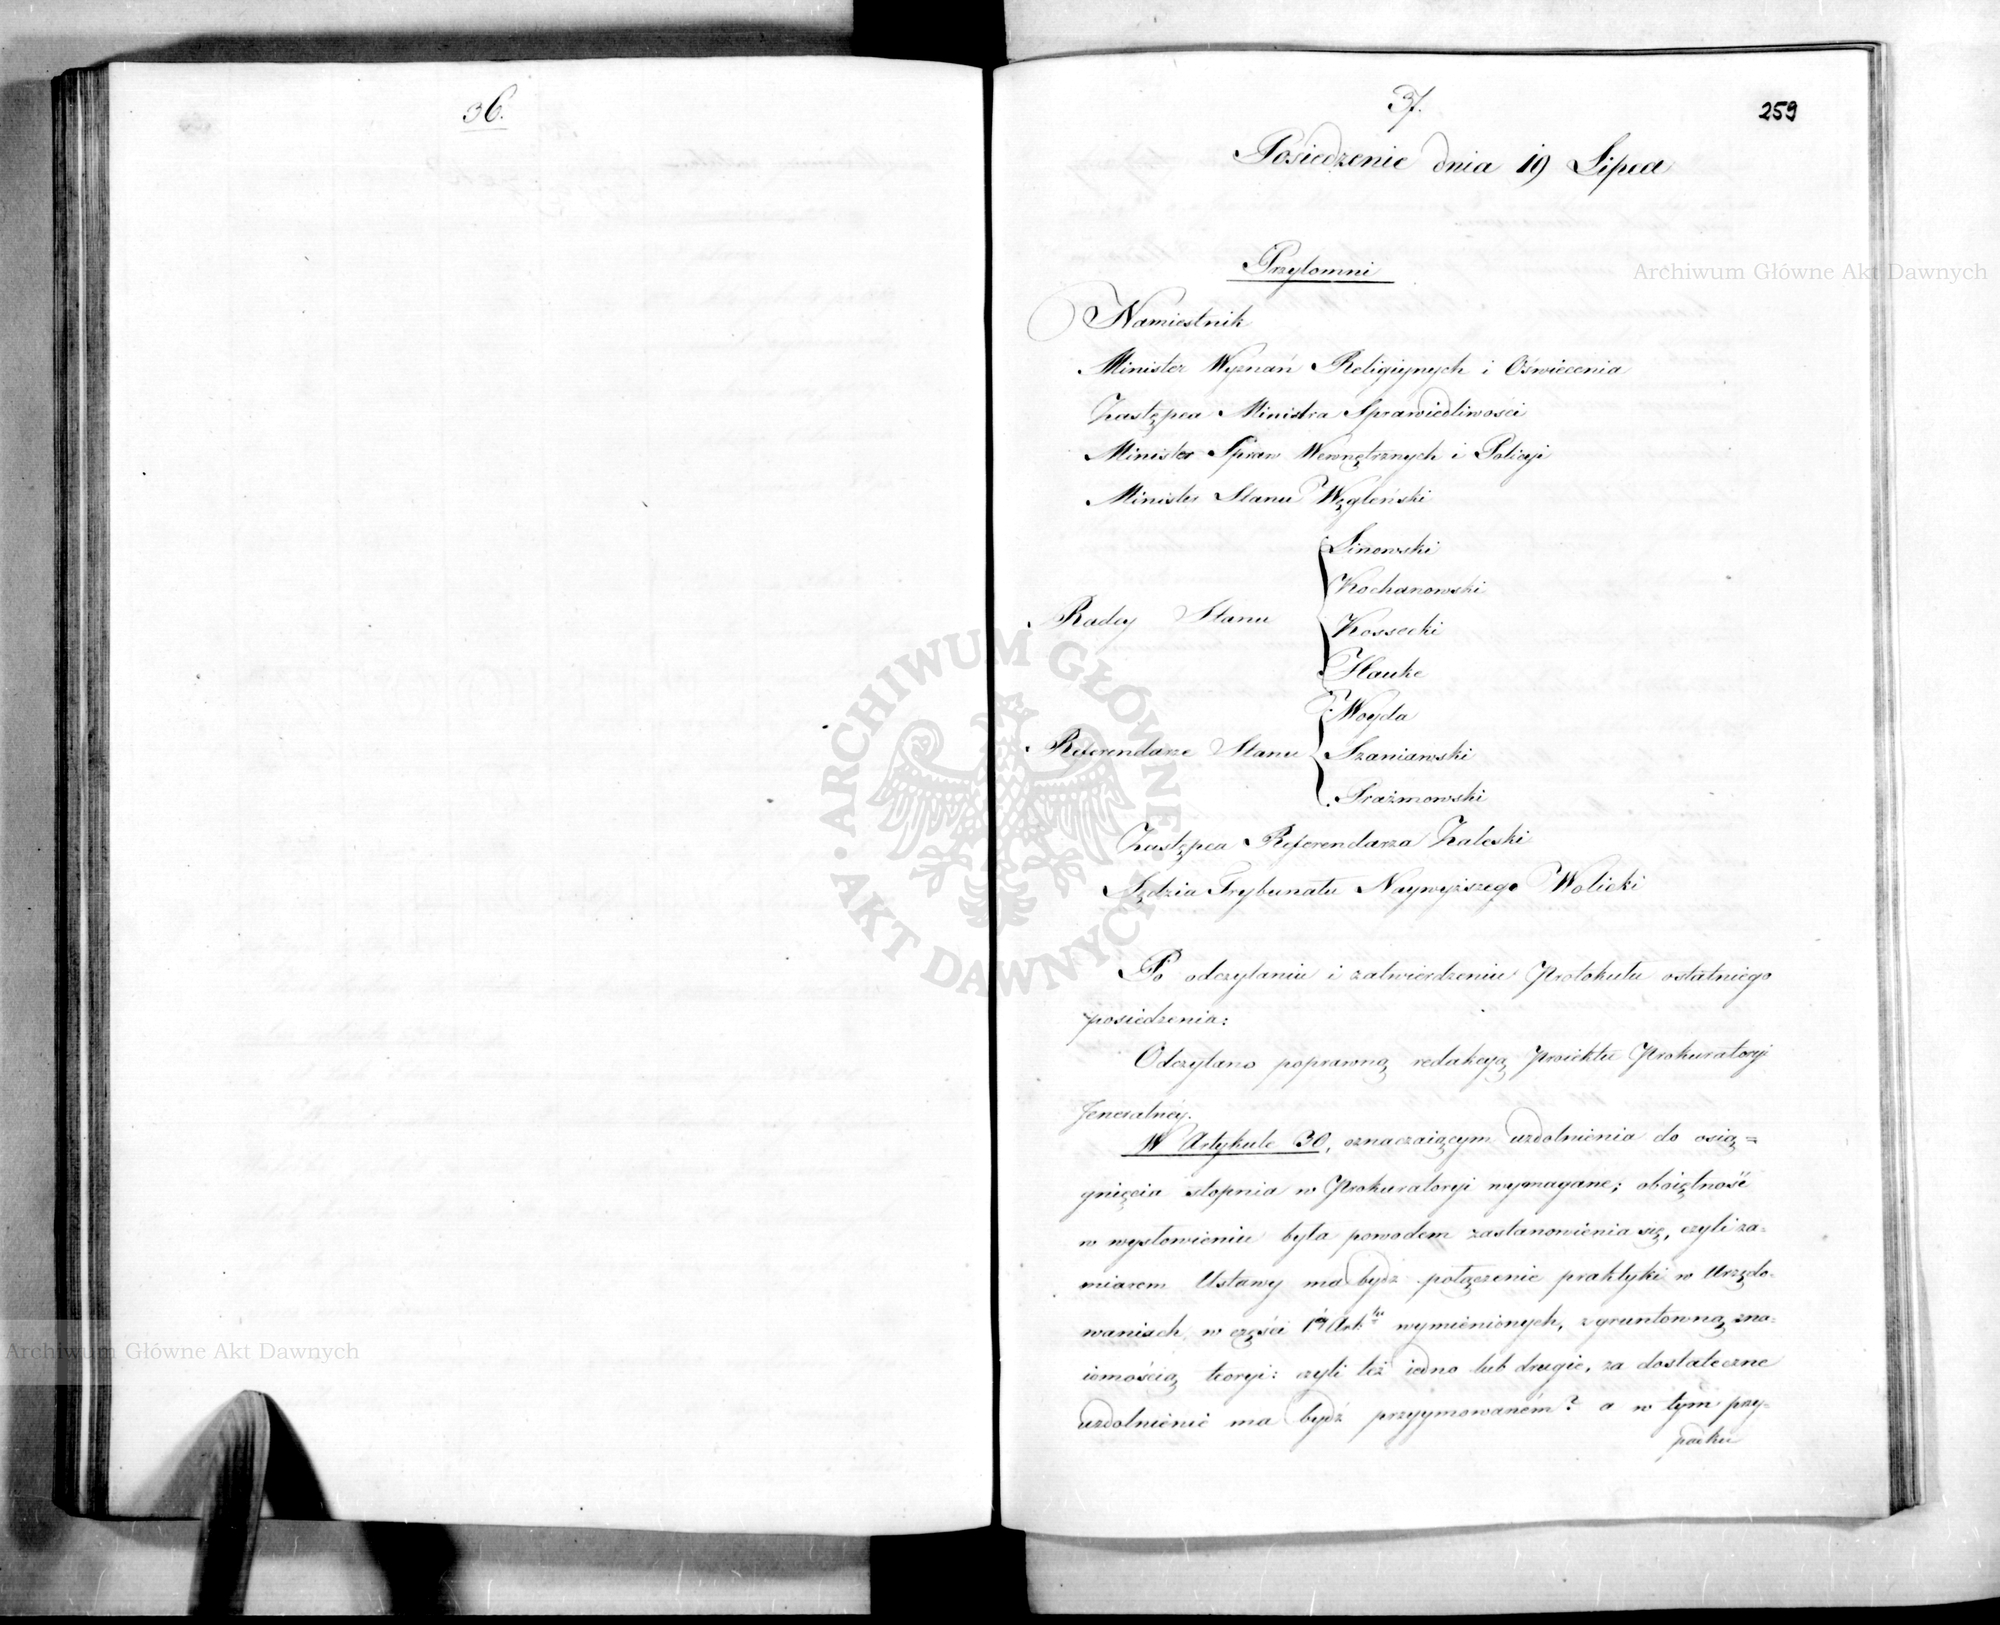 36.
37.
259
Posiedzenie dnia 19 Lipca
Przytomni
Namiestnik
Minister Wyznań Religiynych i Oświecenia
Zastępca Ministra Sprawiedliwości
Minister Spraw Wewnętrznych i Policyi
Minister Stanu Węgleński
Radcy Stanu
Linowski
Kochanowski
Kossecki
Hauke
Referendarze Stanu
Woyda
Szaniawski
Prażmowski
Zastępca Referendarza Zaleski
Sędzia Trybunału Naywyższego Wolicki
Po odczytaniu i zatwierdzeniu Protokułu ostatniego
posiedzenia:
Odczytano poprawną redakcyą Proiektu Prokuratoryi
Jeneralnéy.
W Artykule 30, oznaczaiącym uzdolnienia do osią=
gnięcia stopnia w Prokuratoryi wymagane; oboiętność
w wysłowieniu była powodem zastanowienia się, czyli za-
miarem Ustawy ma bydź połączenie praktyki w Urzędo-
waniach, w części 1éy Art.łu wymienionych, z gruntowną zna-
iomością teoryi: czyli też iedno lub drugie, za dostateczne
uzdolnienie ma bydź przyymowaném? a w tym przy-
padku
ARCHIWUM GŁÓWNE AKT DAWNYCH
Archiwum Główne Akt Dawnych
Archiwum Główne Akt Dawnych